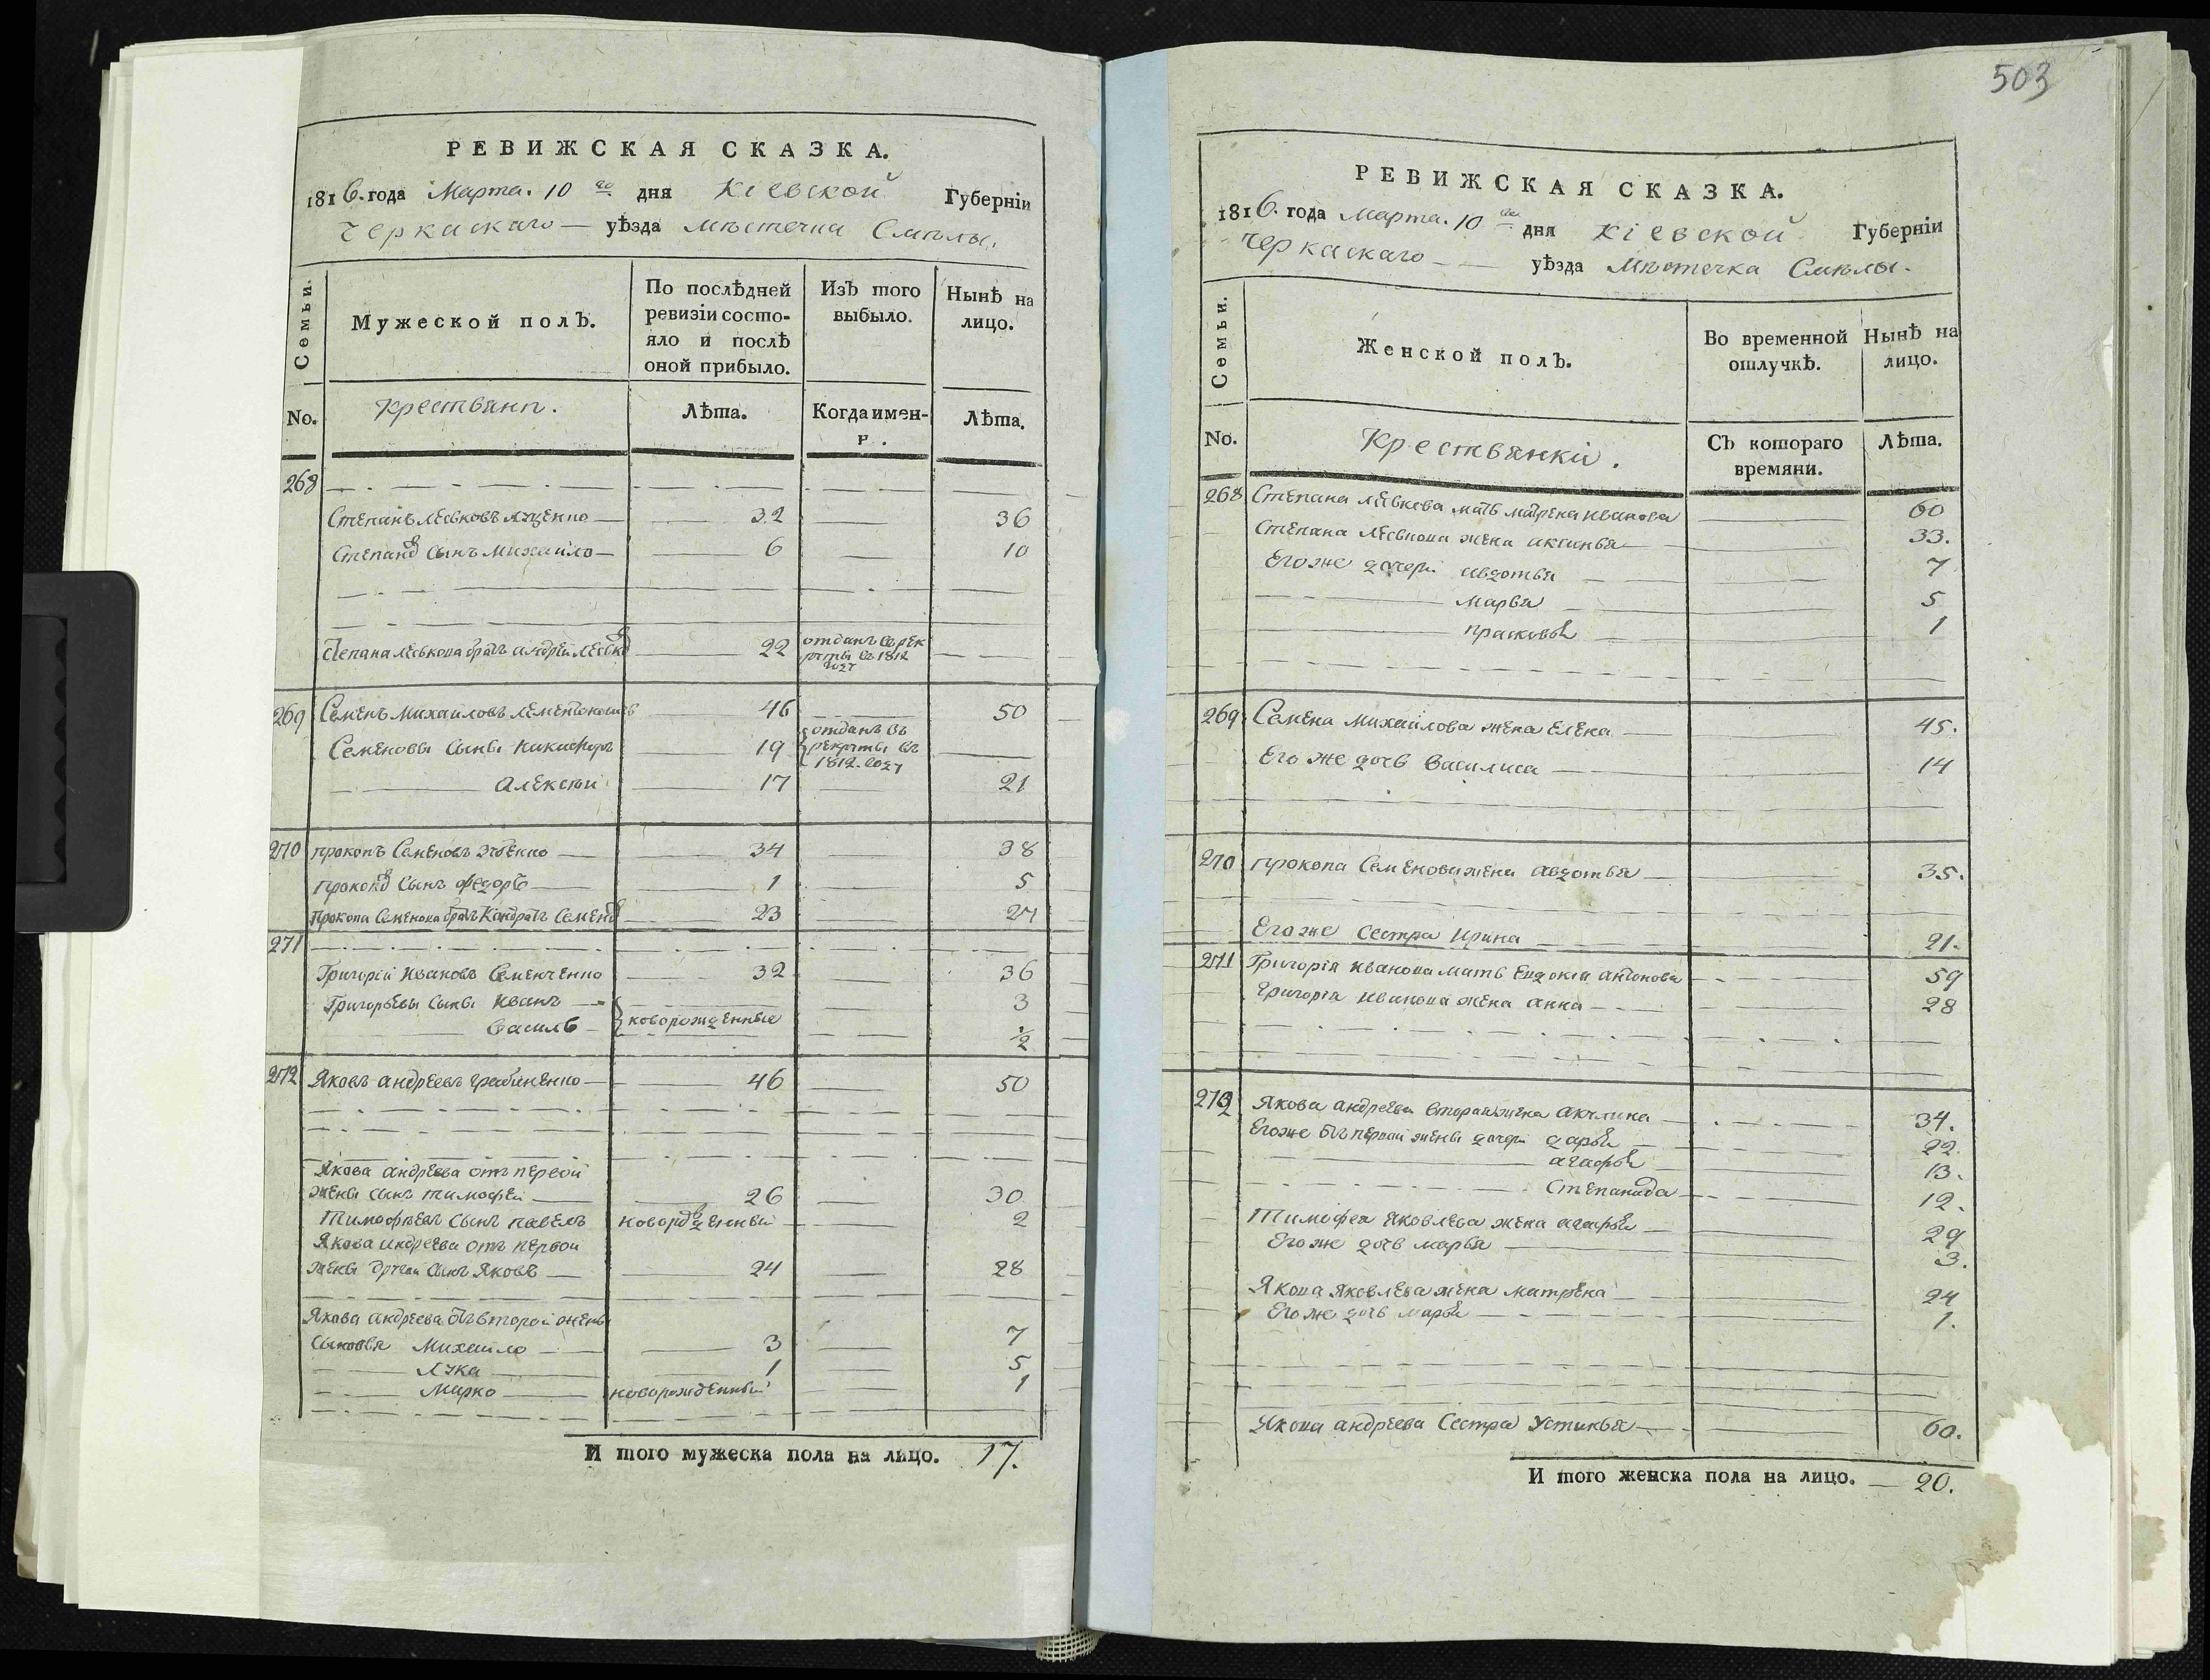 503
РЕВИЖСКАЯ СКАЗКА.
1816. года Марта. 10 го дня Кіевской Губерніи
Черкаскаго — уѣзда мѣстечка Смѣлы.
Семьи.
Мужеской полЪ.
По послѣдней ревизіи состояло и послѣ оной прибыло.
ИзЪ того выбыло.
НынѣЪ на лицо.
No.
Крестьянп.
Лѣта.
Когда имен-
Лѣта.
268
Степанъ Левковъ Яценко — 32 — 36
Степановъ сынъ Михайло — 6 — 10
Степана Левкова братъ Андрей Левковъ 22 отданъ въ рекруты въ 1812 году
269 Семенъ Михайловъ 46 50
Семеновы сыны Никифоръ 19 отданъ въ рекруты въ 1812. году
Алексѣй 17 21
270 Прокопъ Семеновъ — 34 — 38
Прокоповъ сынъ Федоръ — 1 5
Прокопа Семенова братъ Кондратъ Семеновъ 23 27
271
Григорій Ивановъ Семенченко 32 36
Григорьевы сыны Иванъ — 3
Василь — новорожденные ½
272 Яковъ Андреевъ Грабиненко — 46 50
Якова Андреева отъ первой
жены сынъ Тимофей — 26 30
Тимофѣевъ сынъ Павелъ новорожденный — 2
Якова Андреева отъ первой
жены другой сынъ Яковъ — 24 28
Якова Андреева отъ второй жены
сыновья Михайло — 3 7
Лука 1 5
Марко новорожденный 1
И того мужеска пола на лицо. 17.
РЕВИЖСКАЯ СКАЗКА.
1816. года Марта. 10 го дня Кіевской Губерніи
Черкаскаго — уѣзда Мѣстечка Смѣлы.
Семьи.
Женской полЪ.
Во временной отлучкѣ.
Нынѣ на лицо.
No.
Крестьянки.
СЪ котораго времяни.
Лѣта.
268 Степана Левкова мать Матрена Иванова 60
Степана Левкова жена Аксинья 33.
Его же дочери Авдотья — 7
Марья 5
Прасковья 1
269 Семена Михайлова жена Елена 45.
Его же дочь Василиса — 14
270 Прокопа Семенова жена Авдотья — 35.
Его же сестра Ирина 21.
271 Григорія Иванова мать Евдокія Антонова 59
Григорія Иванова жена Анна 28
272 Якова Андреева вторая жена Акулина 34.
Его же отъ первой жены дочери Дарья 22.
Агафья 13.
Степанида 12.
Тимофея Яковлева жена Агафья 29
Его же дочь Марья 3.
Якова Яковлева жена Матрена 24
Его же дочь Марья 1.
Якова Андреева сестра Устинья 60.
И того женска пола на лицо. — 20.